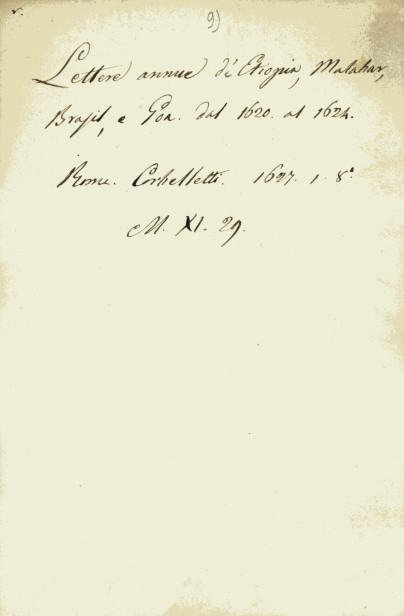 9)
Lettere annue di Etiopia, Malabar,
Brasil, e Goa. dal 1620. al 1624.
Rome. Corbelletti. 1627. 1. 8°
M. XI. 29.